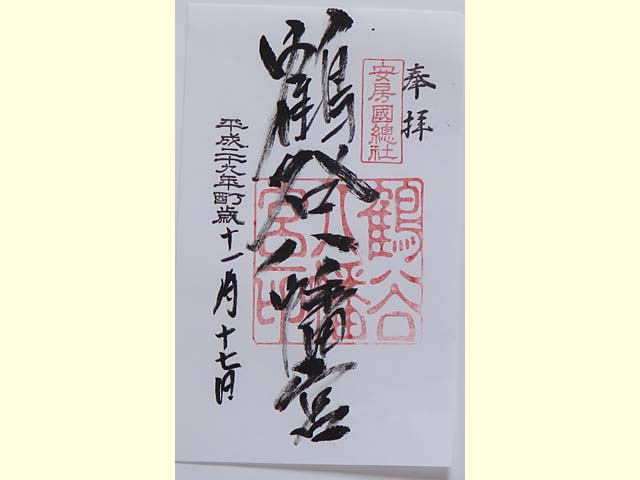 奉拝
安房國總社
鶴谷八幡宮
鶴谷八幡宮印
平成二十九年酉歳十一月十七日